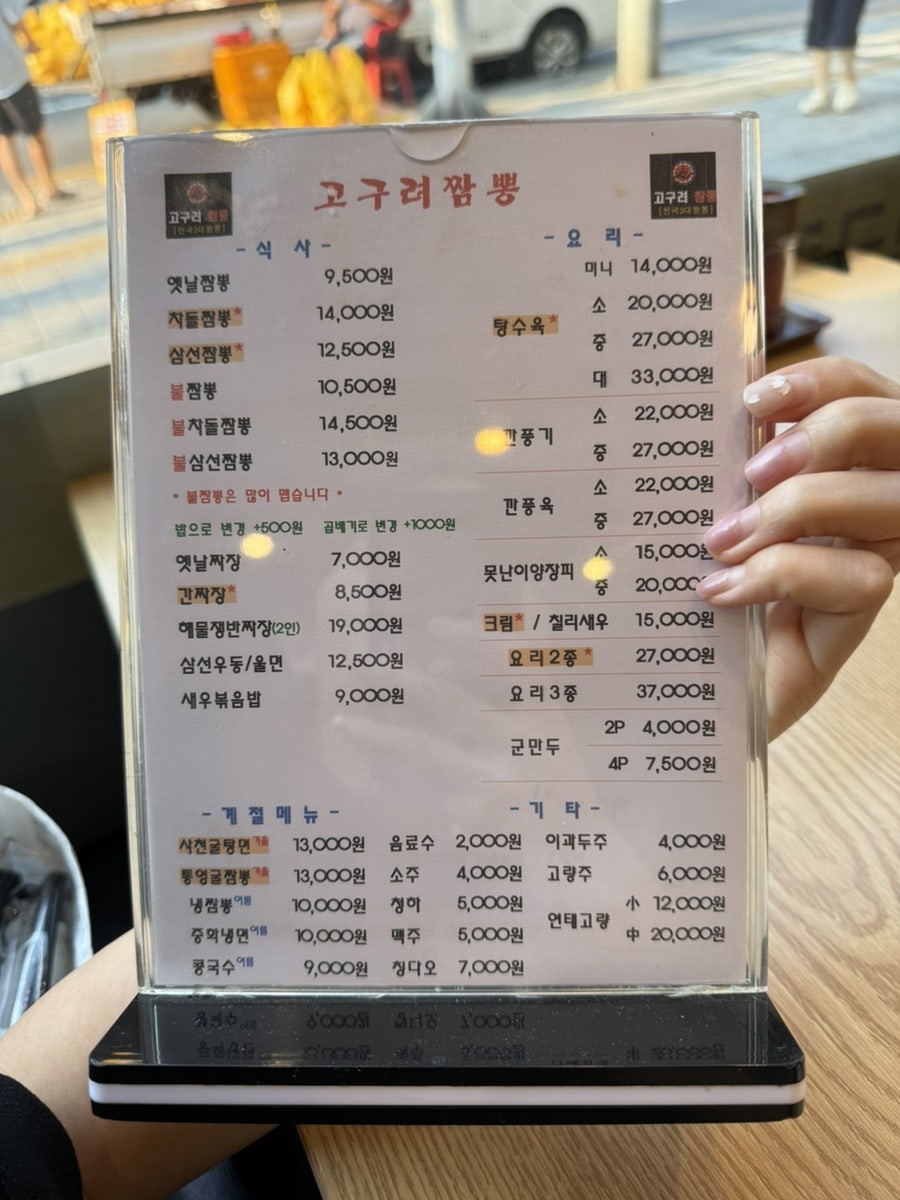 고구려짬뽕
고구려 짬뽕
[전국3대짬뽕]
고구려 짬뽕
[전국3대짬뽕]
- 식 사 -
옛날짬뽕 9,500원
차돌짬뽕* 14,000원
삼선짬뽕* 12,500원
불짬뽕 10,500원
불차돌짬뽕 14,500원
불삼선짬뽕 13,000원
* 불짬뽕은 많이 맵습니다 *
밥으로 변경 +500원 곱배기로 변경 +1000원
옛날짜장 7,000원
간짜장* 8,500원
해물쟁반짜장(2인) 19,000원
삼선우동/울면 12,500원
새우볶음밥 9,000원
- 요 리 -
탕수육*
미니 14,000원
소 20,000원
중 27,000원
대 33,000원
깐풍기
소 22,000원
중 27,000원
깐풍육
소 22,000원
중 27,000원
못난이양장피
소 15,000원
중 20,000
크림* / 칠리새우 15,000원
요리2종* 27,000원
요리3종 37,000원
군만두
2P 4,000원
4P 7,500원
- 계 절 메 뉴 -
사천굴탕면겨울 13,000원
통영굴짬뽕겨울 13,000원
냉짬뽕여름 10,000원
중화냉면여름 10,000원
콩국수여름 9,000원
- 기 타 -
음료수 2,000원
소주 4,000원
청하 5,000원
맥주 5,000원
칭다오 7,000원
이과두주 4,000원
고량주 6,000원
연태고량
小 12,000원
中 20,000원